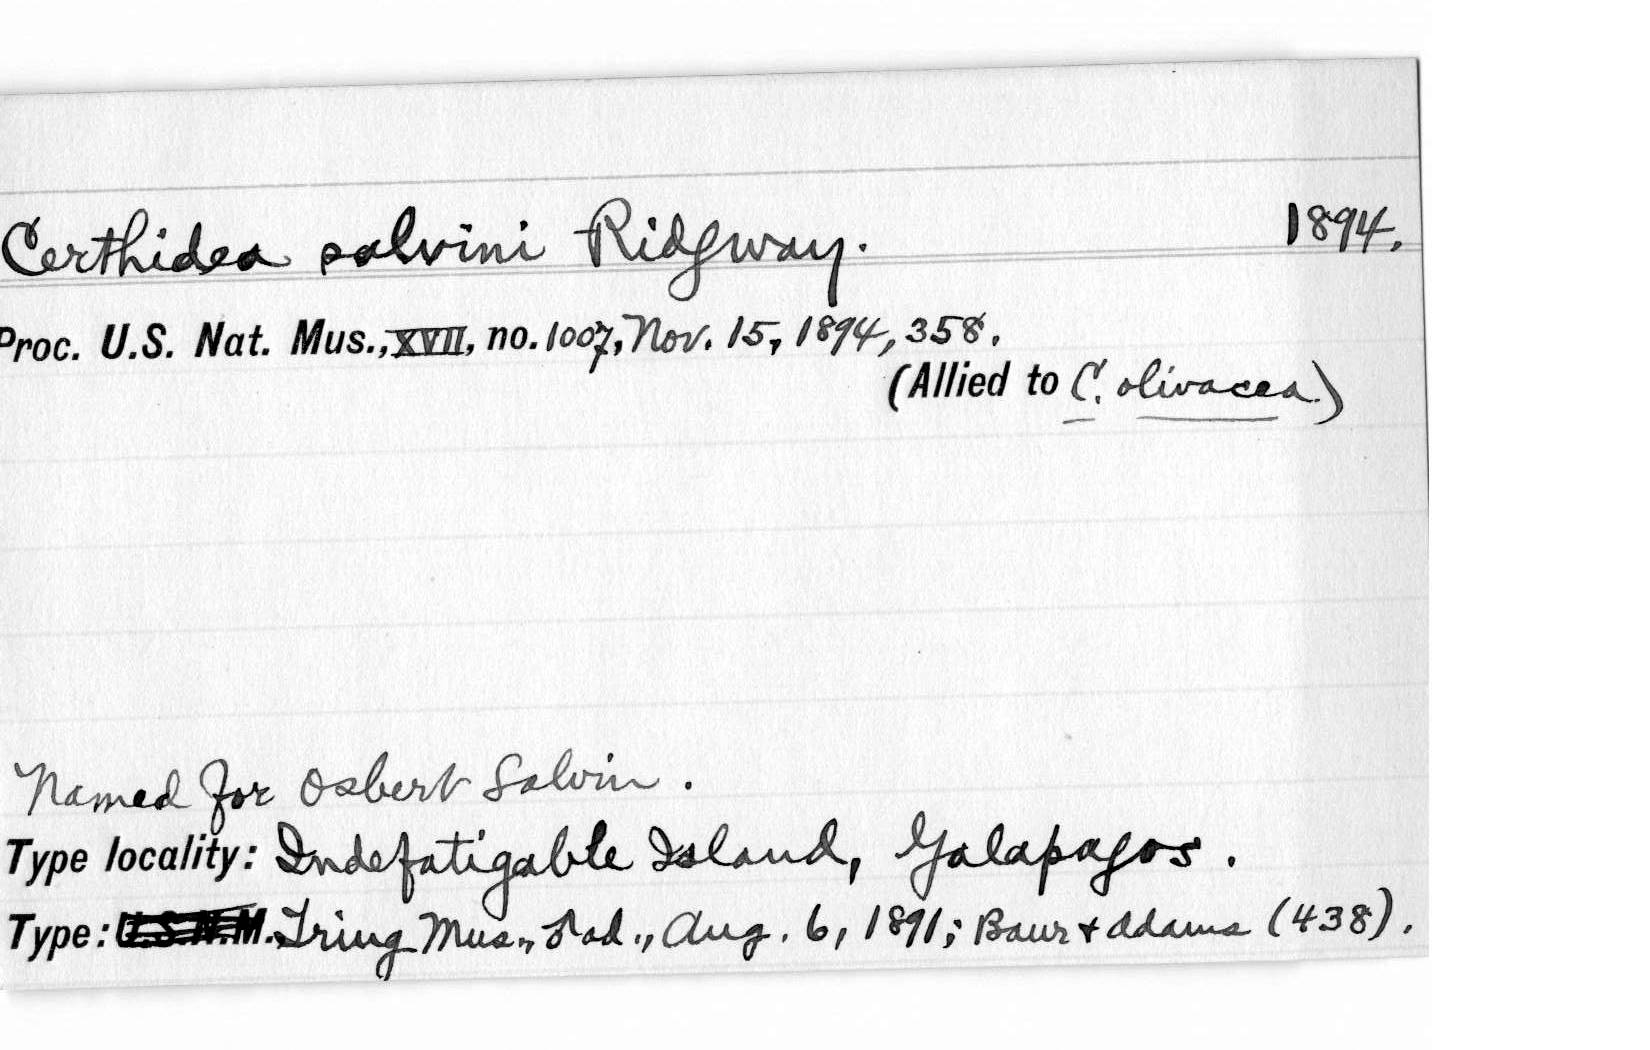 Certhidea salvini Ridgway. 1894.
Proc. U.S. Nat. Mus., XVII, no. 1007, Nov. 15, 1894, 358.
(Allied to C. olivacea.)
Named for Osbert Salvin.
Type locality: Indefatigable Island, Galapagos.
Type: U.S.N.M. Tring Mus., ♂ ad., Aug. 6, 1891; Baur & Adams (438).